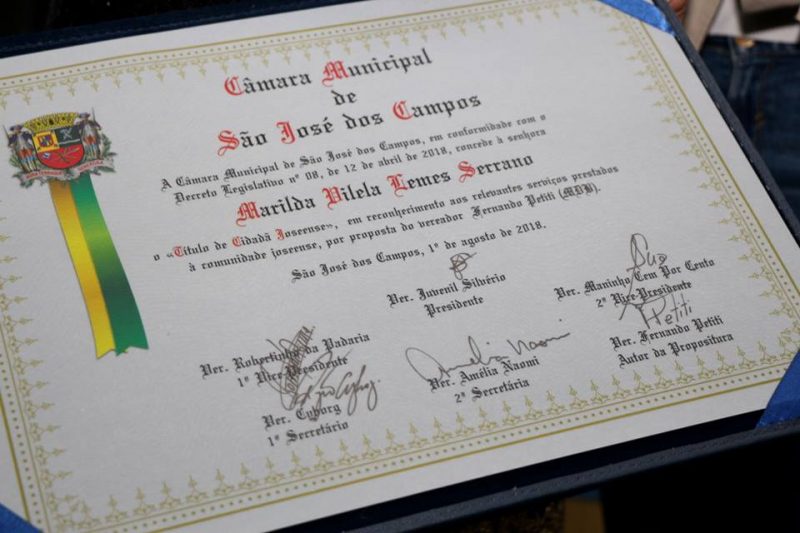 Câmara Municipal
de
São José dos Campos
A Câmara Municipal de São José dos Campos, em conformidade com o
Decreto Legislativo nº 08, de 12 de abril de 2018, concede à senhora
Marilda Vilela Lemes Serrano
o «Título de Cidadã Joseense», em reconhecimento aos relevantes serviços prestados
à comunidade joseense, por proposta do vereador Fernando Petiti (MDB).
São José dos Campos, 1º de agosto de 2018.
Ver. Juvenil Silvério
Presidente
Ver. Maninho Cem Por Cento
2º Vice-Presidente
Ver. Robertinho da Padaria
1º Vice-Presidente
Amélia Naomi
Ver. Amélia Naomi
2ª Secretária
Petiti
Ver. Fernando Petiti
Autor da Propositura
Ver. Cyborg
1º Secretário